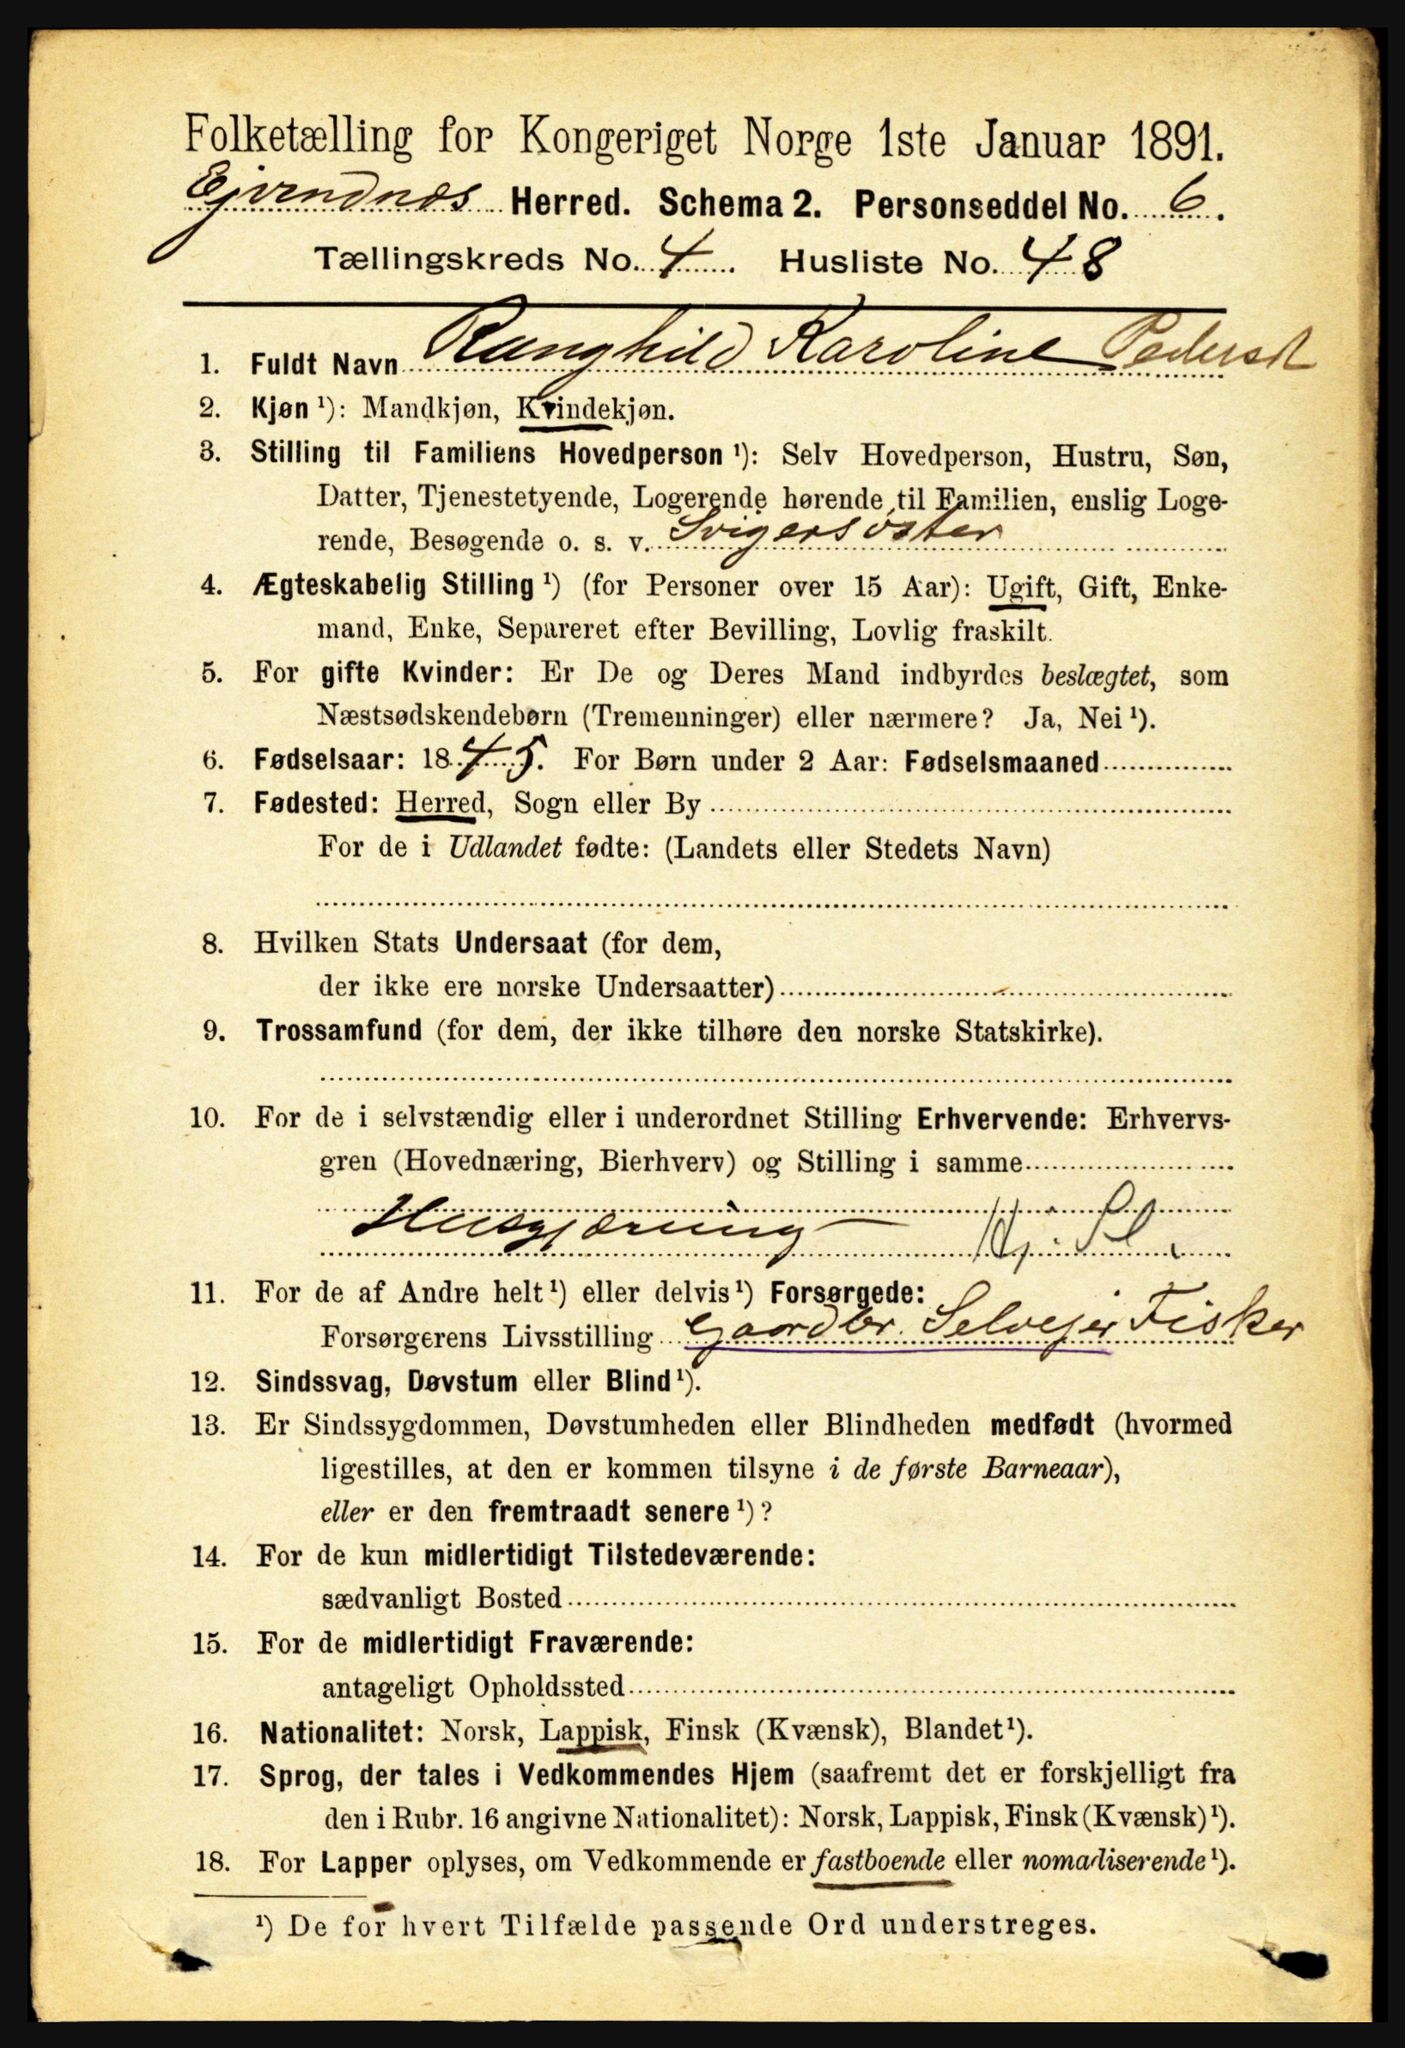 Folketælling for Kongeriget Norge 1ste Januar 1891.
Ejvendnæs Herred. Schema 2. Personseddel No. 6.
Tællingskreds No. 4. Husliste No. 48
1. Fuldt Navn Ranghild Karoline Pedersd
2. Kjøn ¹): Mandkjøn, Kvindekjøn.
3. Stilling til Familiens Hovedperson ¹): Selv Hovedperson, Hustru, Søn,
Datter, Tjenestetyende, Logerende hørende til Familien, enslig Loge-
rende, Besøgende o. s. v. Svigersøster
4. Ægteskabelig Stilling ¹) (for Personer over 15 Aar): Ugift, Gift, Enke-
mand, Enke, Separeret efter Bevilling, Lovlig fraskilt.
5. For gifte Kvinder: Er De og Deres Mand indbyrdes beslægtet, som
Næstsødskendebørn (Tremenninger) eller nærmere? Ja, Nei ¹).
6. Fødselsaar: 1845. For Børn under 2 Aar: Fødselsmaaned
7. Fødested: Herred, Sogn eller By
For de i Udlandet fødte: (Landets eller Stedets Navn)
8. Hvilken Stats Undersaat (for dem,
der ikke ere norske Undersaatter)
9. Trossamfund (for dem, der ikke tilhøre den norske Statskirke).
10. For de i selvstændig eller i underordnet Stilling Erhvervende: Erhvervs-
gren (Hovednæring, Bierhverv) og Stilling i samme
Husgjærning
11. For de af Andre helt ¹) eller delvis ¹) Forsørgede:
Forsørgerens Livsstilling Gaardbr. Selvejer Fisker
12. Sindssvag, Døvstum eller Blind ¹).
13. Er Sindssygdommen, Døvstumheden eller Blindheden medfødt (hvormed
ligestilles, at den er kommen tilsyne i de første Barneaar),
eller er den fremtraadt senere ¹)?
14. For de kun midlertidigt Tilstedeværende:
sædvanligt Bosted
15. For de midlertidigt Fraværende:
antageligt Opholdssted
16. Nationalitet: Norsk, Lappisk, Finsk (Kvænsk), Blandet ¹).
17. Sprog, der tales i Vedkommendes Hjem (saafremt det er forskjelligt fra
den i Rubr. 16 angivne Nationalitet): Norsk, Lappisk, Finsk (Kvænsk) ¹).
18. For Lapper oplyses, om Vedkommende er fastboende eller nomadiserende ¹).
¹) De for hvert Tilfælde passende Ord understreges.